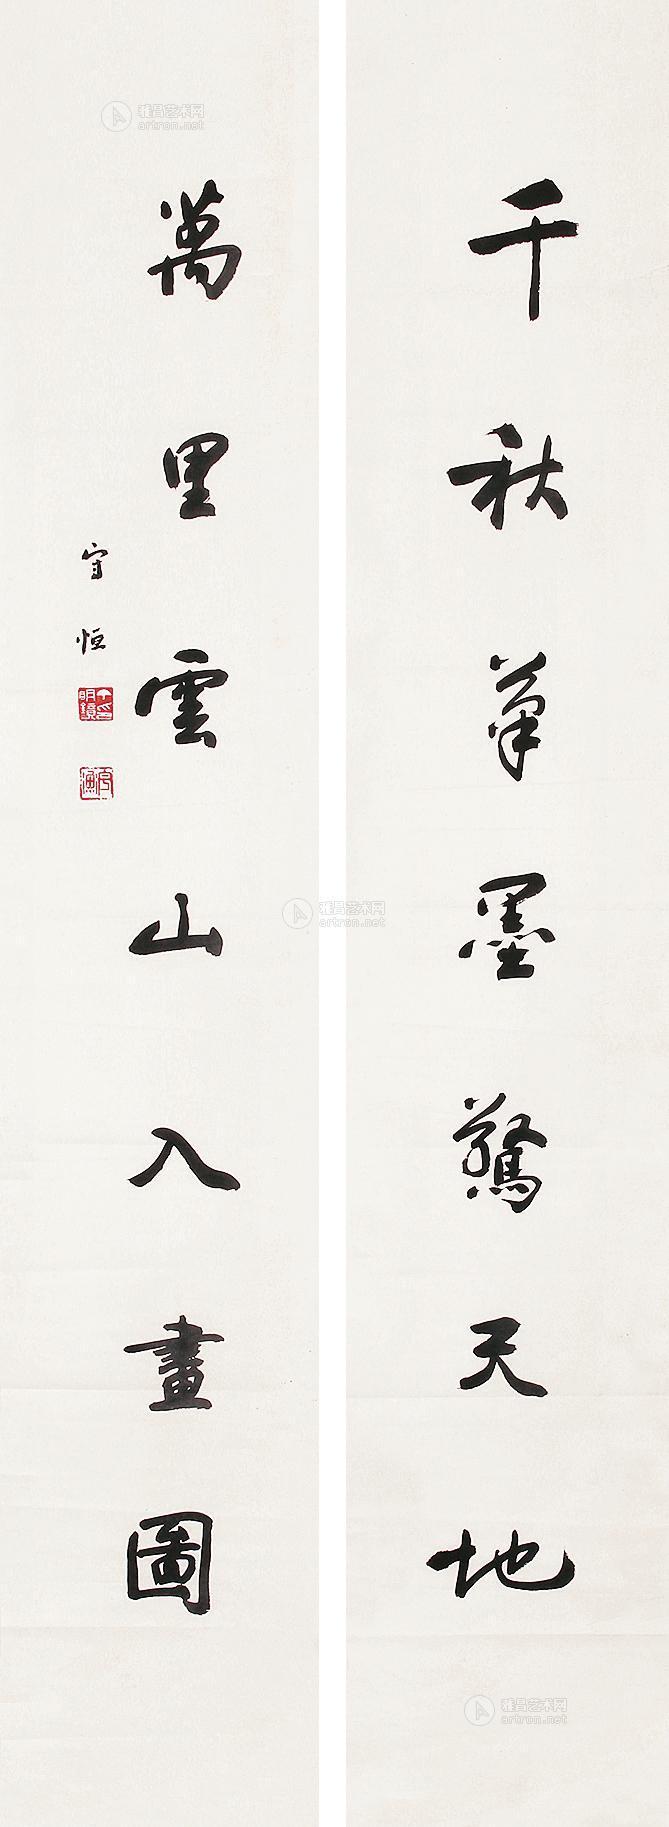 千秋笔墨驚天地
萬里雲山入畫圖
守恒
雅昌艺术网
artron.net
雅昌艺术网
artron.net
雅昌艺术网
artron.net